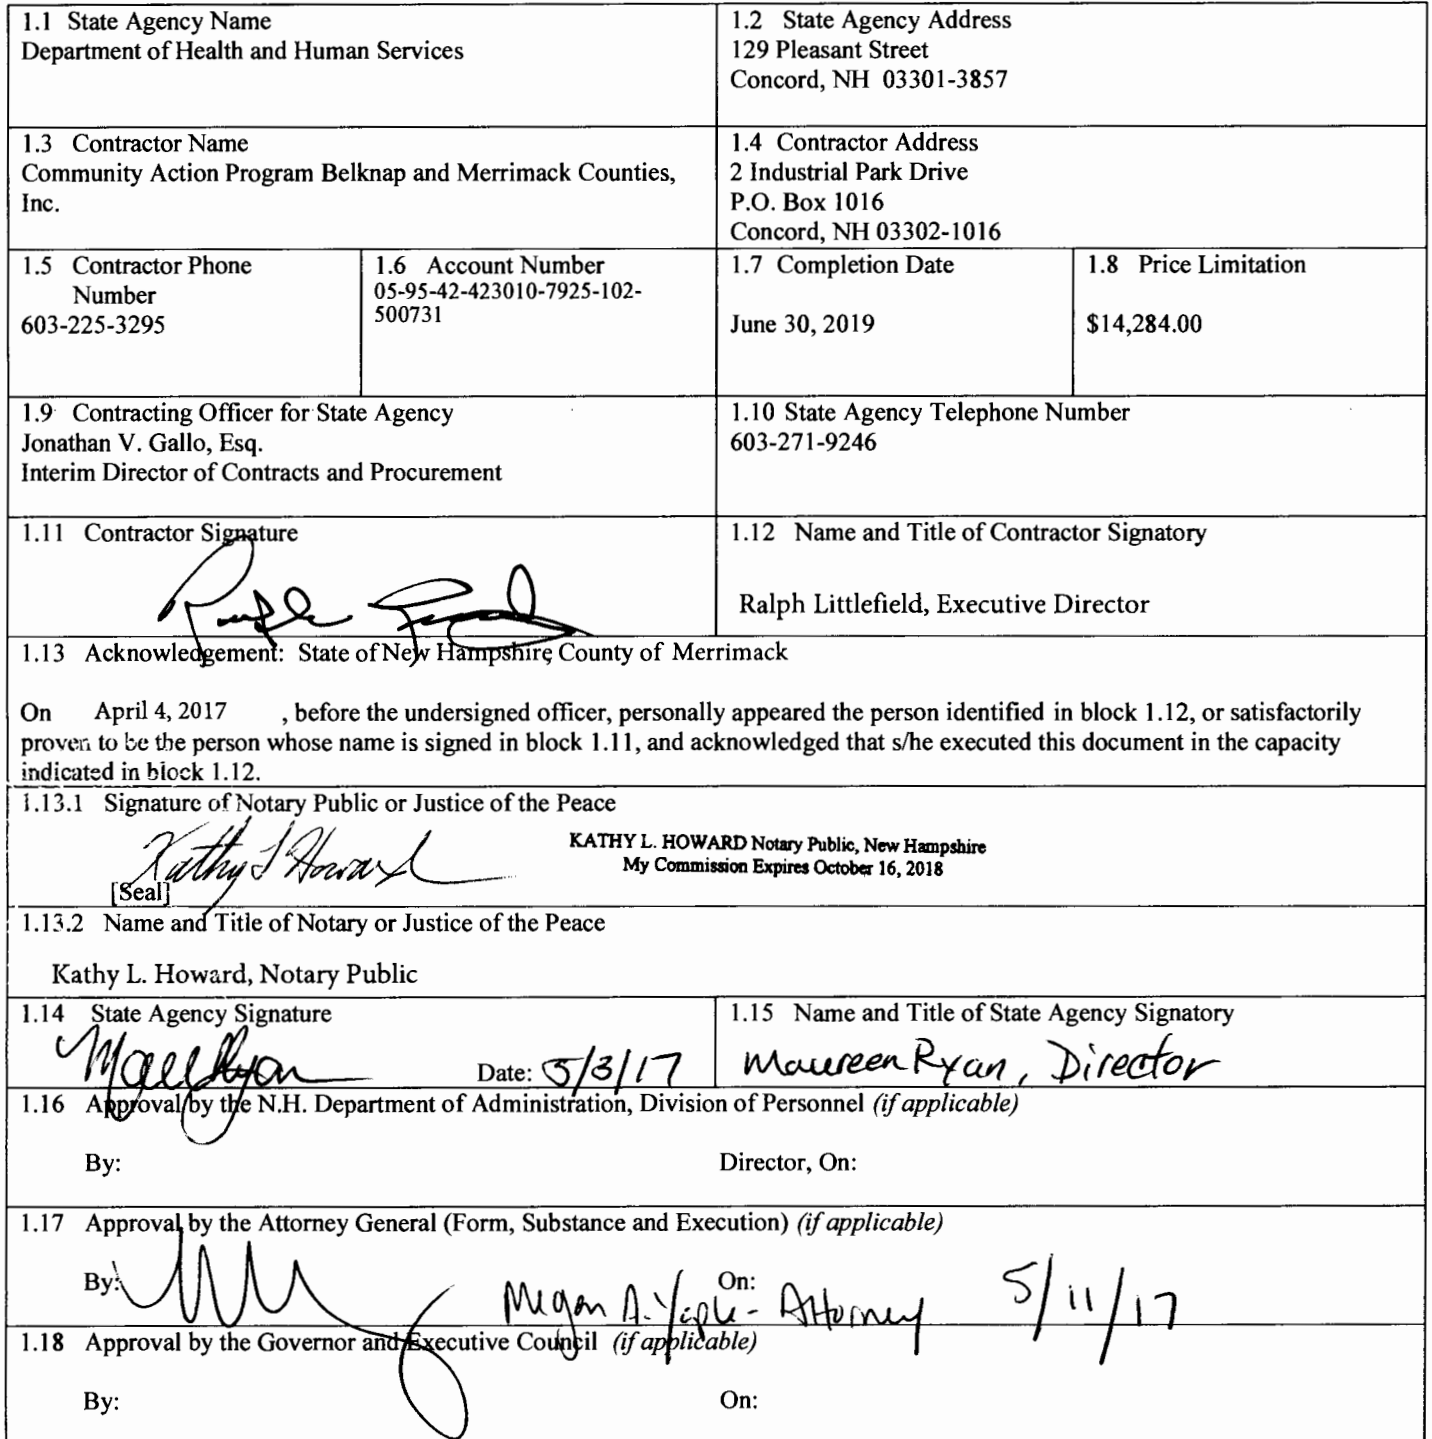 1.1 State Agency Name
Department of Health and Human Services
1.2 State Agency Address
129 Pleasant Street
Concord, NH 03301-3857
1.3 Contractor Name
Community Action Program Belknap and Merrimack Counties,
Inc.
1.4 Contractor Address
2 Industrial Park Drive
P.O. Box 1016
Concord, NH 03302-1016
1.5 Contractor Phone
Number
603-225-3295
1.6 Account Number
05-95-42-423010-7925-102-
500731
1.7 Completion Date
June 30, 2019
1.8 Price Limitation
$14,284.00
1.9 Contracting Officer for State Agency
Jonathan V. Gallo, Esq.
Interim Director of Contracts and Procurement
1.10 State Agency Telephone Number
603-271-9246
1.11 Contractor Signature
1.12 Name and Title of Contractor Signatory
Ralph Littlefield, Executive Director
1.13 Acknowledgement: State of New Hampshire, County of Merrimack
On April 4, 2017 , before the undersigned officer, personally appeared the person identified in block 1.12, or satisfactorily
proven to be the person whose name is signed in block 1.11, and acknowledged that s/he executed this document in the capacity
indicated in block 1.12.
1.13.1 Signature of Notary Public or Justice of the Peace
Kathy L Howard
KATHY L. HOWARD Notary Public, New Hampshire
My Commission Expires October 16, 2018
[Seal]
1.13.2 Name and Title of Notary or Justice of the Peace
Kathy L. Howard, Notary Public
1.14 State Agency Signature
Date: 5/3/17
1.15 Name and Title of State Agency Signatory
Maureen Ryan, Director
1.16 Approval by the N.H. Department of Administration, Division of Personnel (if applicable)
By: Director, On:
1.17 Approval by the Attorney General (Form, Substance and Execution) (if applicable)
By: On:
Megan A. Yaple - Attorney 5/11/17
1.18 Approval by the Governor and Executive Council (if applicable)
By: On: